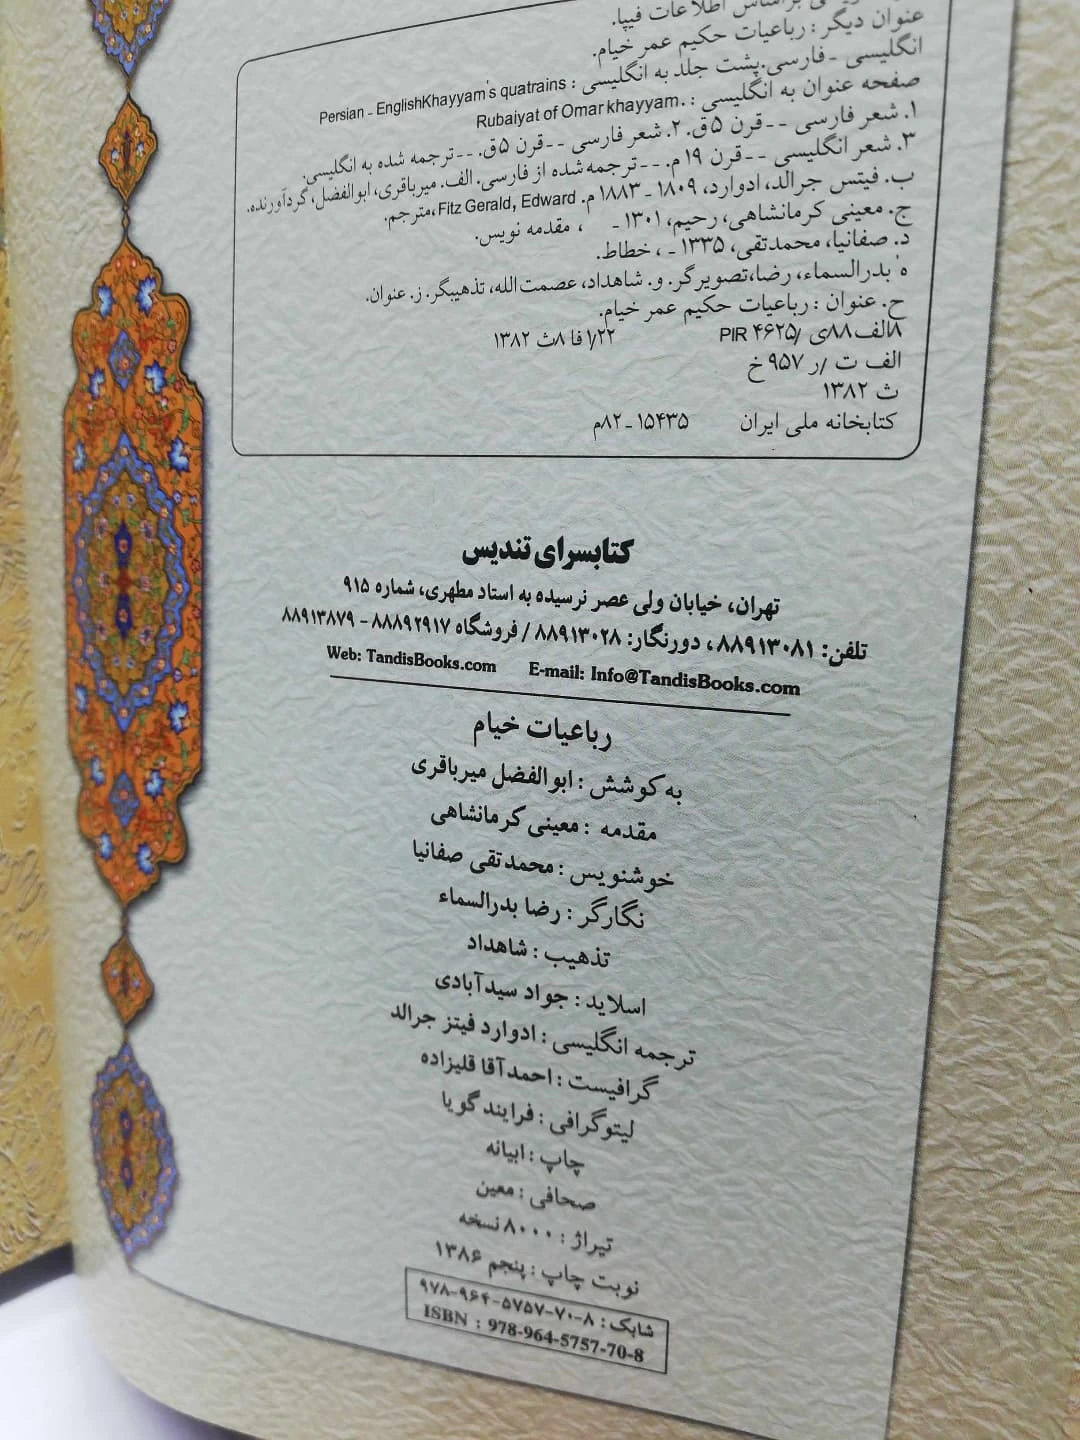 براساس اطلاعات فیپا.
عنوان دیگر : رباعیات حکیم عمر خیام.
انگلیسی - فارسی.پشت جلد به انگلیسی : Persian - EnglishKhayyam's quatrains
صفحه عنوان به انگلیسی : .Rubaiyat of Omar khayyam
۱. شعر فارسی -- قرن ۵ق. ۲. شعر فارسی -- قرن ۵ق. -- ترجمه شده به انگلیسی.
۳. شعر انگلیسی -- قرن ۱۹ م. -- ترجمه شده از فارسی. الف. میرباقری، ابوالفضل، گردآورنده.
ب. فیتس جرالد، ادوارد، ۱۸۰۹ ـ ۱۸۸۳ م. Fitz Gerald, Edward،مترجم.
ج. معینی کرمانشاهی، رحیم، ۱۳۰۱ ـ ، مقدمه نویس.
د. صفانیا، محمدتقی، ۱۳۳۵ ـ ، خطاط.
ه‍ بدرالسماء، رضا،تصویرگر. و. شاهداد، عصمت‌الله، تذهیبگر. ز. عنوان.
ح. عنوان : رباعیات حکیم عمر خیام.
۸الف۸۸ی /PIR ۴۶۲۵ ۱/۲۲فا ۸ث ۱۳۸۲
الف ت /ر ۹۵۷ خ
ث ۱۳۸۲
کتابخانه ملی ایران ۱۵۴۳۵ ـ ۸۲م
کتابسرای تندیس
تهران، خیابان ولی عصر نرسیده به استاد مطهری، شماره ۹۱۵
تلفن: ۸۸۹۱۳۰۸۱، دورنگار: ۸۸۹۱۳۰۲۸ / فروشگاه ۸۸۸۹۲۹۱۷ - ۸۸۹۱۳۸۷۹
Web: TandisBooks.com E-mail: Info@TandisBooks.com
رباعیات خیام
به کوشش : ابوالفضل میرباقری
مقدمه : معینی کرمانشاهی
خوشنویس : محمدتقی صفانیا
نگارگر : رضا بدرالسماء
تذهیب : شاهداد
اسلاید : جواد سیدآبادی
ترجمه انگلیسی : ادوارد فیتز جرالد
گرافیست : احمدآقا قلیزاده
لیتوگرافی : فرایندگویا
چاپ : ابیانه
صحافی : معین
تیراژ : ۸۰۰۰ نسخه
نوبت چاپ : پنجم ۱۳۸۶
شابک : ۸-۷۰-۵۷۵۷-۹۶۴-۹۷۸
ISBN : 978-964-5757-70-8